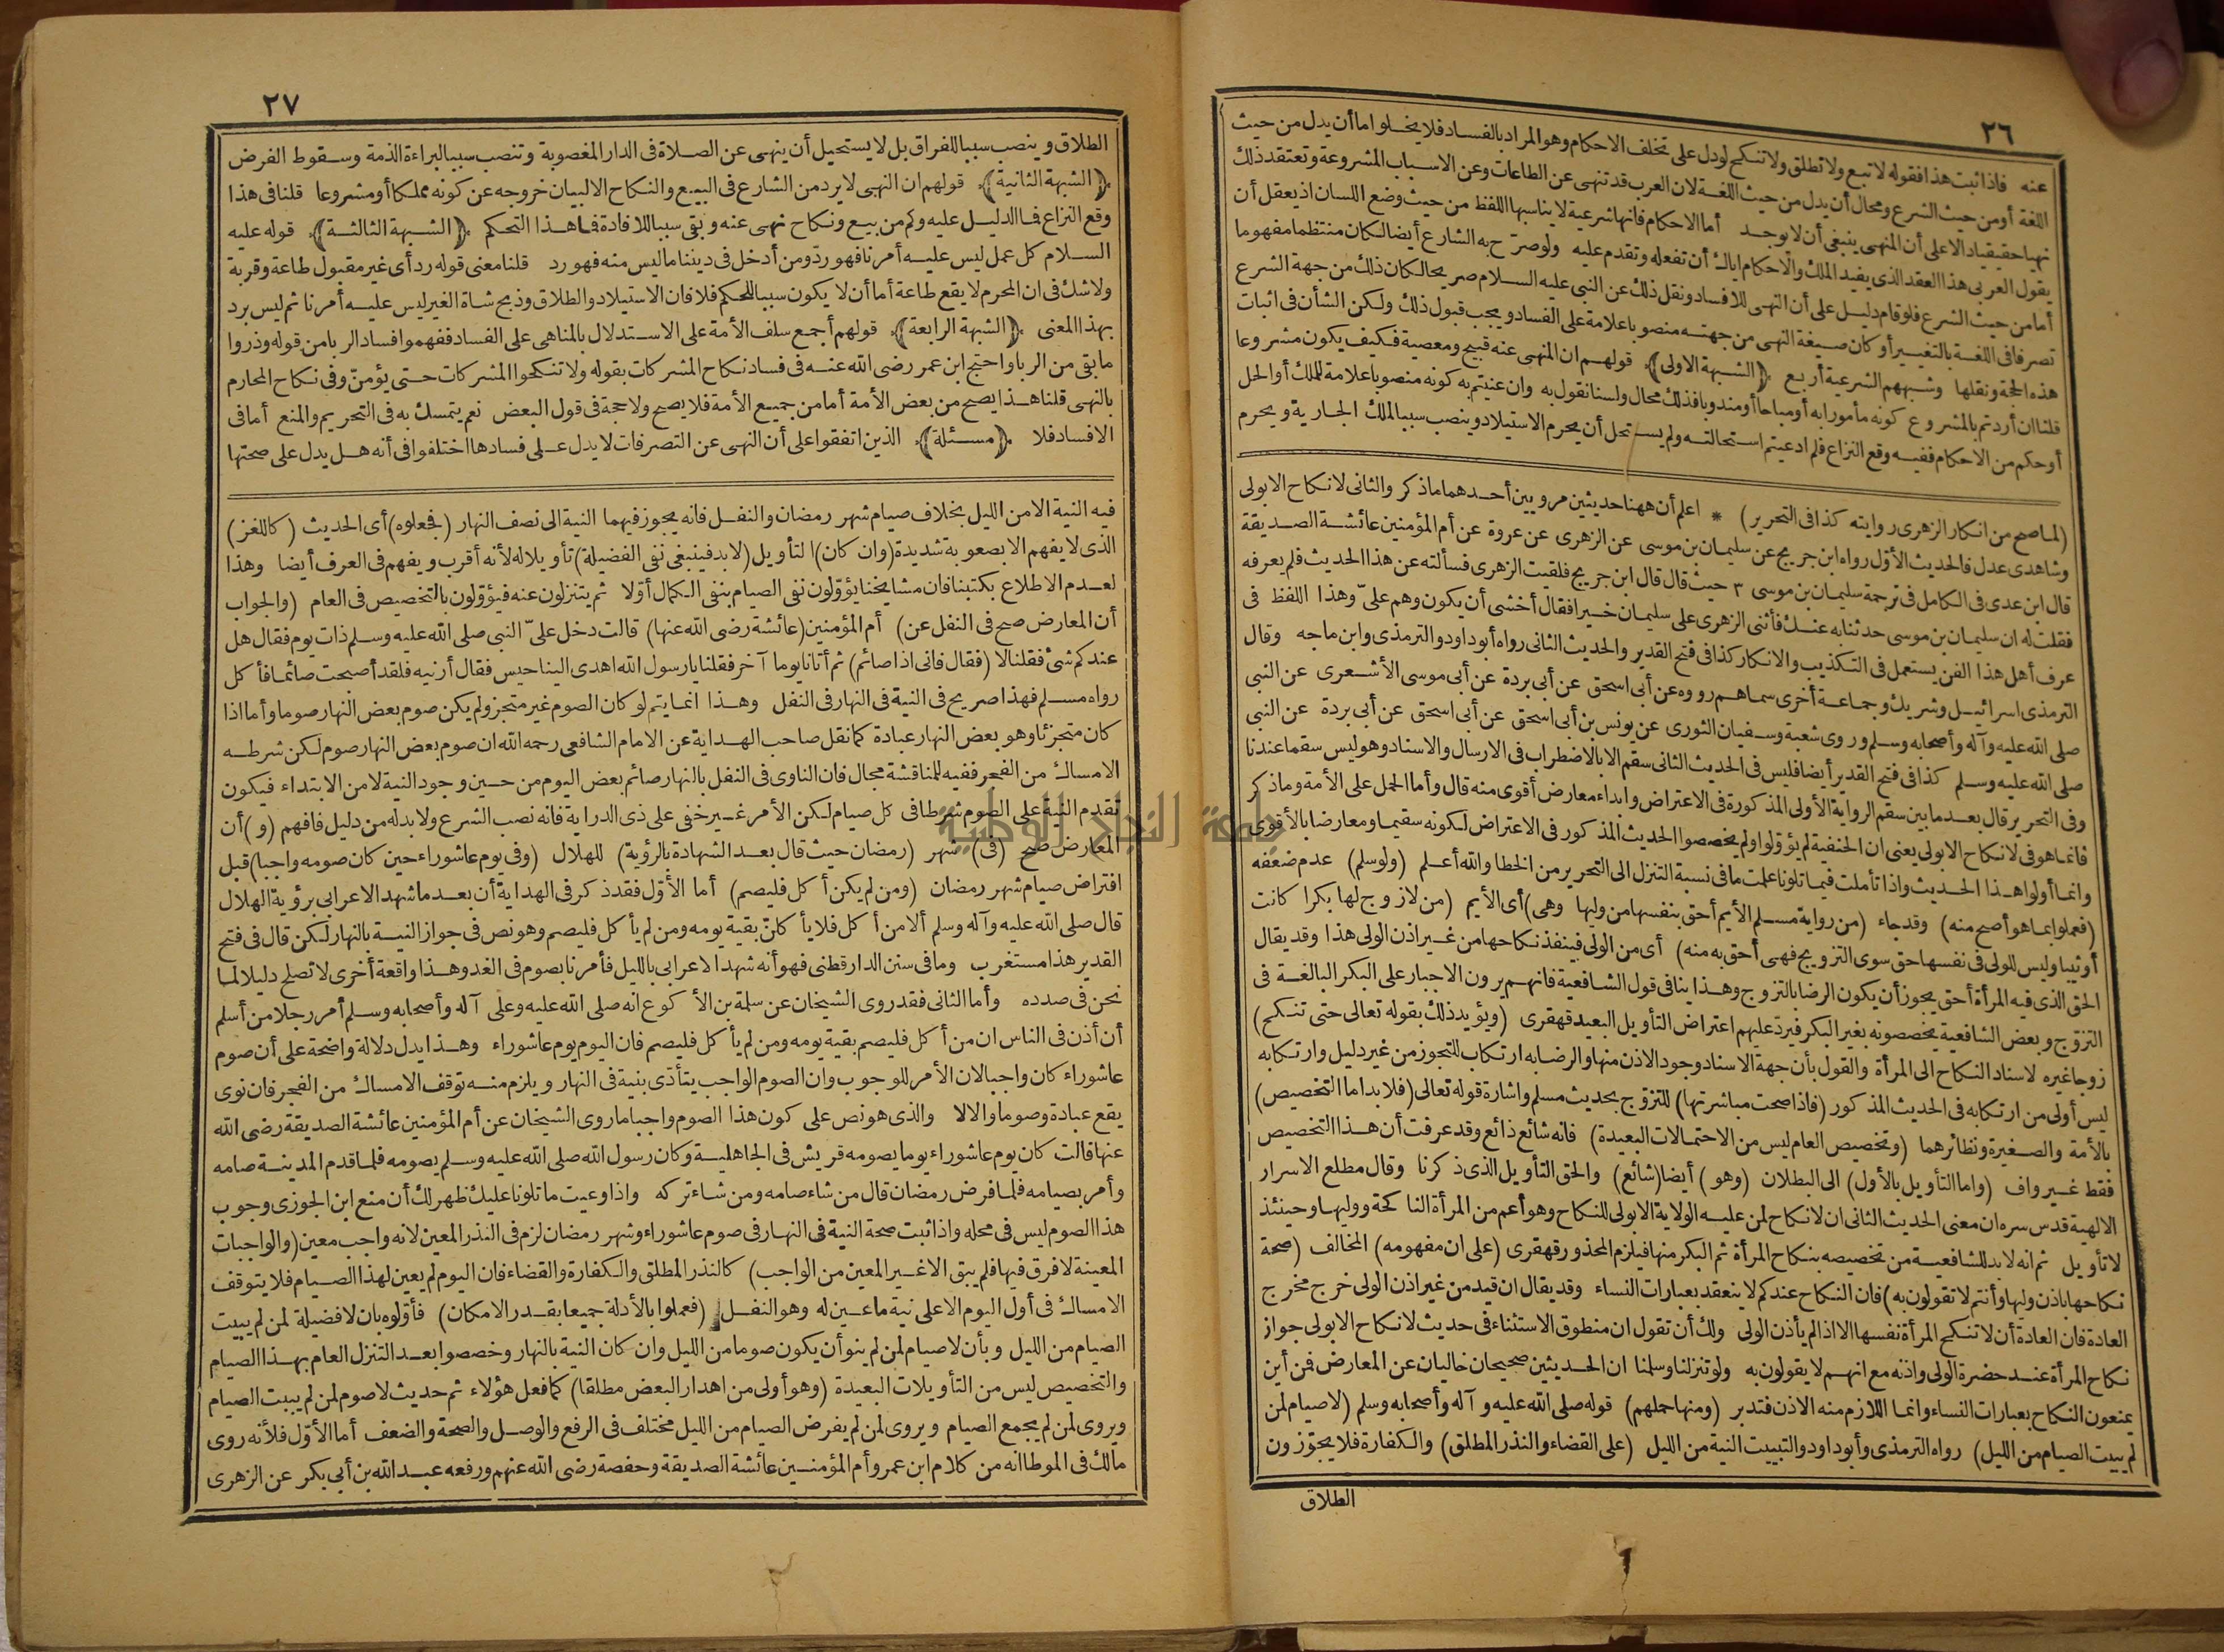 ٢٦
عنه فاذا ثبت هذا فقوله لا تبع ولا تطلق ولا تنكح لو دل على تخلف الاحكام وهو المراد بالفساد فلا يخلو اما أن يدل من حيث
اللغة أو من حيث الشرع ومحال أن يدل من حيث اللغة لان العرب قد تنهى عن الطاعات وعن الاسباب المشروعة وتعتقد ذلك
نهيا حقيقيا دالا على أن المنهى ينبغى أن لا يوجد أما الاحكام فانها شرعية لا يناسبها اللفظ من حيث وضع اللسان اذ يعقل أن
يقول العربى هذا العقد الذى يفيد الملك والاحكام اياك أن تفعله وتقدم عليه ولو صرح به الشارع أيضا لكان منتظما مفهوما
أما من حيث الشرع فلو قام دليل على أن النهى للافساد ونقل ذلك عن النبى عليه السلام صريحا لكان ذلك من جهة الشرع
تصرفا فى اللغة بالتغيير أو كان صيغة النهى من جهته منصوبا علامة على الفساد ويجب قبول ذلك ولكن الشأن فى اثبات
هذه الحجة ونقلها وشبههم الشرعية أربع ﴿الشبهة الاولى﴾ قولهم ان المنهى عنه قبيح ومعصية فكيف يكون مشروعا
قلنا ان أردتم بالمشروع كونه مأمورا به أو مباحا أو مندوبا فذلك محال ولسنا نقول به وان عنيتم به كونه منصوبا علامة للملك أو الحل
أو حكم من الاحكام ففيه وقع النزاع فلم ادعيتم استحالته ولم يستحل أن يحرم الاستيلاد وينصب سببا لملك الجارية ويحرم
(لما صح من انكار الزهرى روايته كذا فى التحرير) * اعلم أن ههنا حديثين مرويين أحدهما ما ذكر والثانى لا نكاح الا بولى
وشاهدى عدل فالحديث الأول رواه ابن جريج عن سليمان بن موسى عن الزهرى عن عروة عن أم المؤمنين عائشة الصديقة
قال ابن عدى فى الكامل فى ترجمة سليمان بن موسى ٣ حيث قال قال ابن جريج فلقيت الزهرى فسألته عن هذا الحديث فلم يعرفه
فقلت له ان سليمان بن موسى حدثنا به عنك فأثنى الزهرى على سليمان خيرا فقال أخشى أن يكون وهم علىّ وهذا اللفظ فى
عرف أهل هذا الفن يستعمل فى التكذيب والانكار كذا فى فتح القدير والحديث الثانى رواه أبو داود والترمذى وابن ماجه وقال
الترمذى اسرائيل وشريك وجماعة أخرى سماهم رووه عن أبى اسحق عن أبى بردة عن أبى موسى الأشعرى عن النبى
صلى الله عليه وآله وأصحابه وسلم وروى شعبة وسفيان الثورى عن يونس بن أبى اسحق عن أبى اسحق عن أبى بردة عن النبى
صلى الله عليه وسلم كذا فى فتح القدير أيضا فليس فى الحديث الثانى سقم الا بالاضطراب فى الارسال والاسناد وهو ليس سقما عندنا
وفى التحرير قال بعد ما بين سقم الرواية الأولى المذكورة فى الاعتراض وابداء معارض أقوى منه قال وأما الحمل على الأمة وما ذكر
فانما هو فى لا نكاح الا بولى يعنى ان الحنفية لم يؤولوا ولم يخصصوا الحديث المذكور فى الاعتراض لكونه سقيما ومعارضا بالأقوى
وانما أولوا هذا الحديث واذا تأملت فيما تلونا علمت ما فى نسبة التنزل الى التحرير من الخطا والله أعلم (ولو سلم) عدم ضعفه
(فعملوا بما هو أصح منه) وقد جاء (من رواية مسلم الأيم أحق بنفسها من وليها وهى) أى الأيم (من لا زوج لها بكرا كانت
أو ثيبا وليس للولى فى نفسها حق سوى التزويج فهى أحق به منه) أى من الولى فينفذ نكاحها من غير اذن الولى هذا وقد يقال
الحق الذى فيه المرأة أحق يجوز أن يكون الرضا بالتزوج وهذا ينافى قول الشافعية فانهم يرون الاجبار على البكر البالغة فى
التزوج وبعض الشافعية يخصصونه بغير البكر فيرد عليهم اعتراض التأويل البعيد قهقرى (ويؤيد ذلك بقوله تعالى حتى تنكح)
زوجا غيره لاسناد النكاح الى المرأة والقول بأن جهة الاسناد وجود الاذن منها والرضا به ارتكاب للتجوز من غير دليل وارتكابه
ليس أولى من ارتكابه فى الحديث المذكور (فاذا صحت مباشرتها) للتزوج بحديث مسلم واشارة قوله تعالى (فلا بد اما التخصيص)
بالأمة والصغيرة ونظائرهما (وتخصيص العام ليس من الاحتمالات البعيدة) فانه شائع ذائع وقد عرفت أن هذا التخصيص
فقط غير واف (واما التأويل بالأول) الى البطلان (وهو) أيضا (شائع) والحق التأويل الذى ذكرنا وقال مطلع الاسرار
الالهية قدس سره ان معنى الحديث الثانى ان لا نكاح لمن عليه الولاية الا بولى للنكاح وهو أعم من المرأة الناكحة ووليها وحينئذ
لا تأويل ثم انه لا بد للشافعية من تخصيصه بنكاح المرأة ثم البكر منها فيلزم المحذور قهقرى (على ان مفهومه) المخالف (صحة
نكاحها باذن وليها وأنتم لا تقولون به) فان النكاح عندكم لا ينعقد بعبارات النساء وقد يقال ان قيد من غير اذن الولى خرج مخرج
العادة فان العادة أن لا تنكح المرأة نفسها الا اذا لم يأذن الولى ولك أن تقول ان منطوق الاستثناء فى حديث لا نكاح الا بولى جواز
نكاح المرأة عند حضرة الولى واذنه مع انهم لا يقولون به ولو تنزلنا وسلمنا ان الحديثين صحيحان خاليان عن المعارض فمن أين
يمنعون النكاح بعبارات النساء وانما اللازم منه الاذن فتدبر (ومنها حملهم) قوله صلى الله عليه وآله وأصحابه وسلم (لا صيام لمن
لم يبيت الصيام من الليل) رواه الترمذى وأبو داود والتبييت النية من الليل (على القضاء والنذر المطلق) والكفارة فلا يجوزون
الطلاق
٢٧
الطلاق وينصب سببا للفراق بل لا يستحيل أن ينهى عن الصلاة فى الدار المغصوبة وتنصب سببا لبراءة الذمة وسقوط الفرض
﴿الشبهة الثانية﴾ قولهم ان النهى لا يرد من الشارع فى البيع والنكاح الا لبيان خروجه عن كونه مملكا أو مشروعا قلنا فى هذا
وقع النزاع فما الدليل عليه وكم من بيع ونكاح نهى عنه وبقى سببا للافادة فما هذا التحكم ﴿الشبهة الثالثة﴾ قوله عليه
السلام كل عمل ليس عليه أمرنا فهو ردّ ومن أدخل فى ديننا ما ليس منه فهو رد قلنا معنى قوله رد أى غير مقبول طاعة وقربة
ولا شك فى ان المحرم لا يقع طاعة أما أن لا يكون سببا للحكم فلا فان الاستيلاد والطلاق وذبح شاة الغير ليس عليه أمرنا ثم ليس برد
بهذا المعنى ﴿الشبهة الرابعة﴾ قولهم أجمع سلف الأمة على الاستدلال بالمناهى على الفساد ففهموا فساد الربا من قوله وذروا
ما بقى من الربا واحتج ابن عمر رضى الله عنه فى فساد نكاح المشركات بقوله ولا تنكحوا المشركات حتى يؤمنّ وفى نكاح المحارم
بالنهى قلنا هذا يصح من بعض الأمة أما من جميع الأمة فلا يصح ولا حجة فى قول البعض نعم يتمسك به فى التحريم والمنع أما فى
الافساد فلا ﴿مسئلة﴾ الذين اتفقوا على أن النهى عن التصرفات لا يدل على فسادها اختلفوا فى أنه هل يدل على صحتها
فيه النية الا من الليل بخلاف صيام شهر رمضان والنفل فانه يجوز فيهما النية الى نصف النهار (فجعلوه) أى الحديث (كاللغز)
الذى لا يفهم الا بصعوبة شديدة (وان كان) التأويل (لا بد فينبغى نفى الفضيلة) تأويلا له لأنه أقرب ويفهم فى العرف أيضا وهذا
لعدم الاطلاع بكتبنا فان مشايخنا يؤولون نفى الصيام بنفى الكمال أولا ثم يتنزلون عنه فيؤولون بالتخصيص فى العام (والجواب
أن المعارض صح فى النفل عن) أم المؤمنين (عائشة رضى الله عنها) قالت دخل علىّ النبى صلى الله عليه وسلم ذات يوم فقال هل
عندكم شئ فقلنا لا (فقال فانى اذا صائم) ثم أتانا يوما آخر فقلنا يا رسول الله اهدى الينا حيس فقال أرنيه فلقد أصبحت صائما فأكل
رواه مسلم فهذا صريح فى النية فى النهار فى النفل وهذا انما يتم لو كان الصوم غير متجز ولم يكن صوم بعض النهار صوما وأما اذا
كان متجزئا وهو بعض النهار عبادة كما نقل صاحب الهداية عن الامام الشافعى رحمه الله ان صوم بعض النهار صوم لكن شرطه
الامساك من الفجر ففيه للمناقشة مجال فان الناوى فى النفل بالنهار صائم بعض اليوم من حين وجود النية لا من الابتداء فيكون
تقدم النية على الصوم شرطا فى كل صيام لكن الأمر غير خفى على ذى الدراية فانه نصب الشرع ولا بد له من دليل فافهم (و) أن
المعارض صح (فى) شهر (رمضان حيث قال بعد الشهادة بالرؤية) للهلال (وفى يوم عاشوراء حين كان صومه واجبا) قبل
افتراض صيام شهر رمضان (ومن لم يكن أكل فليصم) أما الأول فقد ذكر فى الهداية أن بعد ما شهد الاعرابى برؤية الهلال
قال صلى الله عليه وآله وسلم ألا من أكل فلا يأكلنّ بقية يومه ومن لم يأكل فليصم وهو نص فى جواز النية بالنهار لكن قال فى فتح
القدير هذا مستغرب وما فى سنن الدارقطنى فهو أنه شهد الاعرابى بالليل فأمرنا بصوم فى الغد وهذا واقعة أخرى لا تصلح دليلا لما
نحن فى صدده وأما الثانى فقد روى الشيخان عن سلمة بن الأكوع انه صلى الله عليه وعلى آله وأصحابه وسلم أمر رجلا من أسلم
أن أذن فى الناس ان من أكل فليصم بقية يومه ومن لم يأكل فليصم فان اليوم يوم عاشوراء وهذا يدل دلالة واضحة على أن صوم
عاشوراء كان واجبا لان الأمر للوجوب وان الصوم الواجب يتأدّى بنية فى النهار ويلزم منه توقف الامساك من الفجر فان نوى
يقع عبادة وصوما والا لا والذى هو نص على كون هذا الصوم واجبا ما روى الشيخان عن أم المؤمنين عائشة الصديقة رضى الله
عنها قالت كان يوم عاشوراء يوما يصومه قريش فى الجاهلية وكان رسول الله صلى الله عليه وسلم يصومه فلما قدم المدينة صامه
وأمر بصيامه فلما فرض رمضان قال من شاء صامه ومن شاء تركه واذا وعيت ما تلونا عليك ظهر لك أن منع ابن الجوزى وجوب
هذا الصوم ليس فى محله واذا ثبت صحة النية فى النهار فى صوم عاشوراء وشهر رمضان لزم فى النذر المعين لانه واجب معين (والواجبات
المعينة لا فرق فيها فلم يبق الا غير المعين من الواجب) كالنذر المطلق والكفارة والقضاء فان اليوم لم يعين لهذا الصيام فلا يتوقف
الامساك فى أول اليوم الا على نية ما عين له وهو النفل (فعملوا بالأدلة جميعا بقدر الامكان) فأولوه بان لا فضيلة لمن لم يبيت
الصيام من الليل وبأن لا صيام لمن لم ينو أن يكون صوما من الليل وان كان النية بالنهار وخصصوا بعد التنزل العام بهذا الصيام
والتخصيص ليس من التأويلات البعيدة (وهو أولى من اهدار البعض مطلقا) كما فعل هؤلاء ثم حديث لا صوم لمن لم يبيت الصيام
ويروى لمن لم يجمع الصيام ويروى لمن لم يفرض الصيام من الليل مختلف فى الرفع والوصل والصحة والضعف أما الأول فلأنه روى
مالك فى الموطا انه من كلام ابن عمر وأم المؤمنين عائشة الصديقة وحفصة رضى الله عنهم ورفعه عبد الله بن أبى بكر عن الزهرى
جامعة النجاح الوطنية